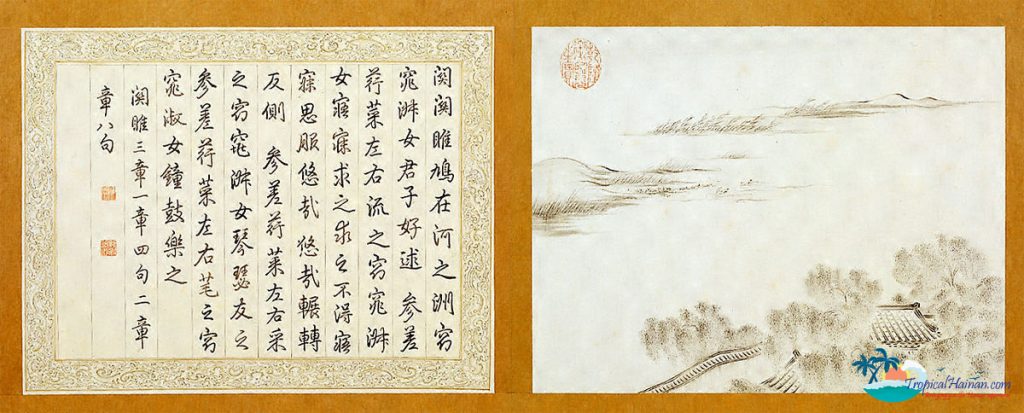 關關雎鳩在河之洲窈
窕淑女君子好逑 參差
荇菜左右流之窈窕淑
女寤寐求之求之不得寤
寐思服悠哉悠哉輾轉
反側 參差荇菜左右采
之窈窕淑女琴瑟友之
參差荇菜左右芼之窈
窕淑女鐘鼓樂之
關雎三章一章四句二章
章八句
TropicalHainan.com